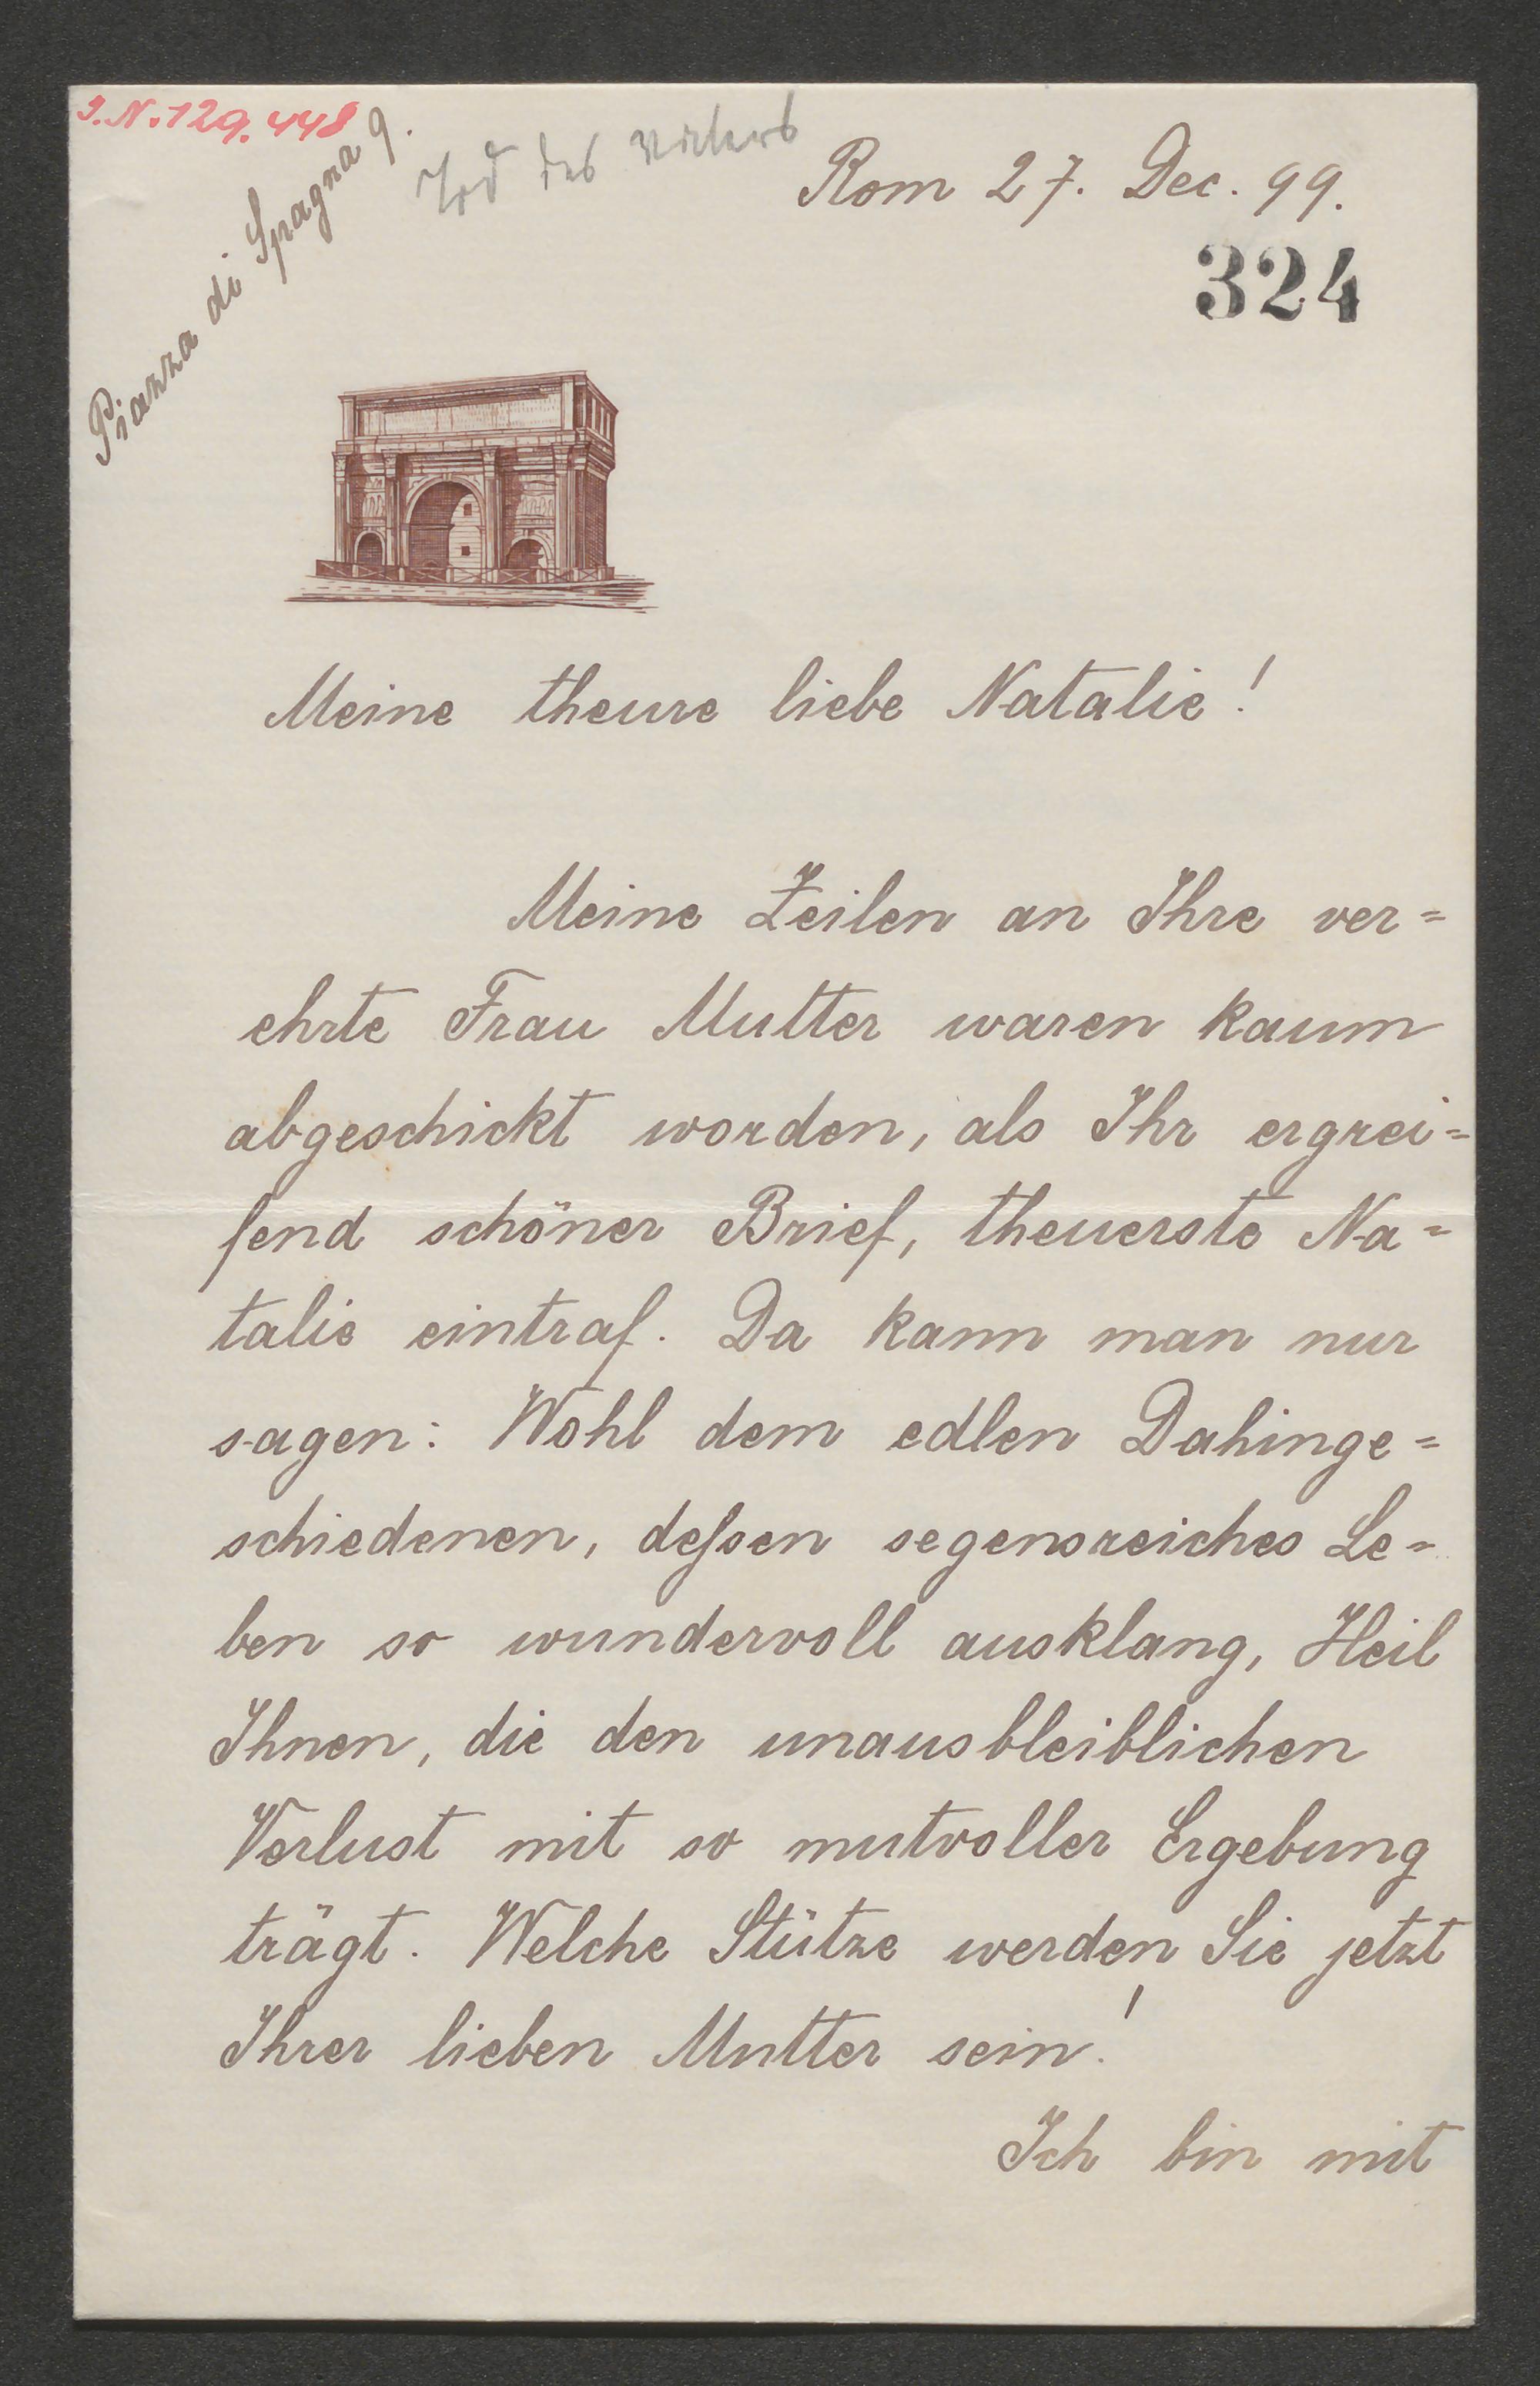 I.N.129.448
Tod des Vaters
Piazza di Spagna 9.
Rom 27. Dec. 99.
324
Meine theure liebe Natalie!
Meine Zeilen an Ihre ver=
ehrte Frau Mutter waren kaum
abgeschickt worden, als Ihr ergrei=
fend schöner Brief, theuerste Na=
talie eintraf. Da kann man nur
sagen: Wohl dem edlen Dahinge=
schiedenen, deſsen segensreiches Le=
ben so wundervoll ausklang, Heil
Ihnen, die den unausbleiblichen
Verlust mit so mutvoller Ergebung
trägt. Welche Stütze werden Sie jetzt
Ihrer lieben Mutter sein!
Ich bin mit